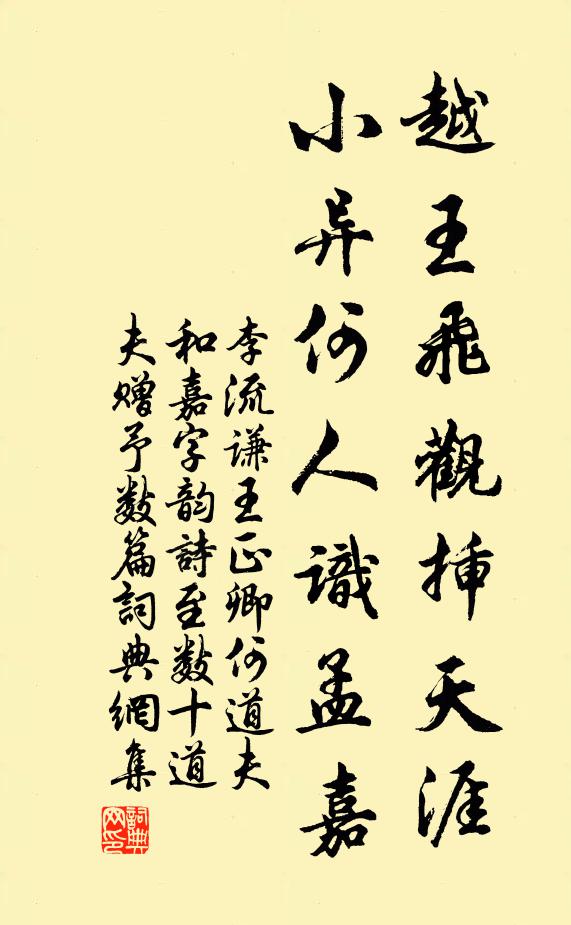 越王飛觀插天涯
小异何人識孟嘉
李流謙王正卿何道夫
和嘉字韵詩至數十道
夫贈予數篇詞典網集
詞典
网印